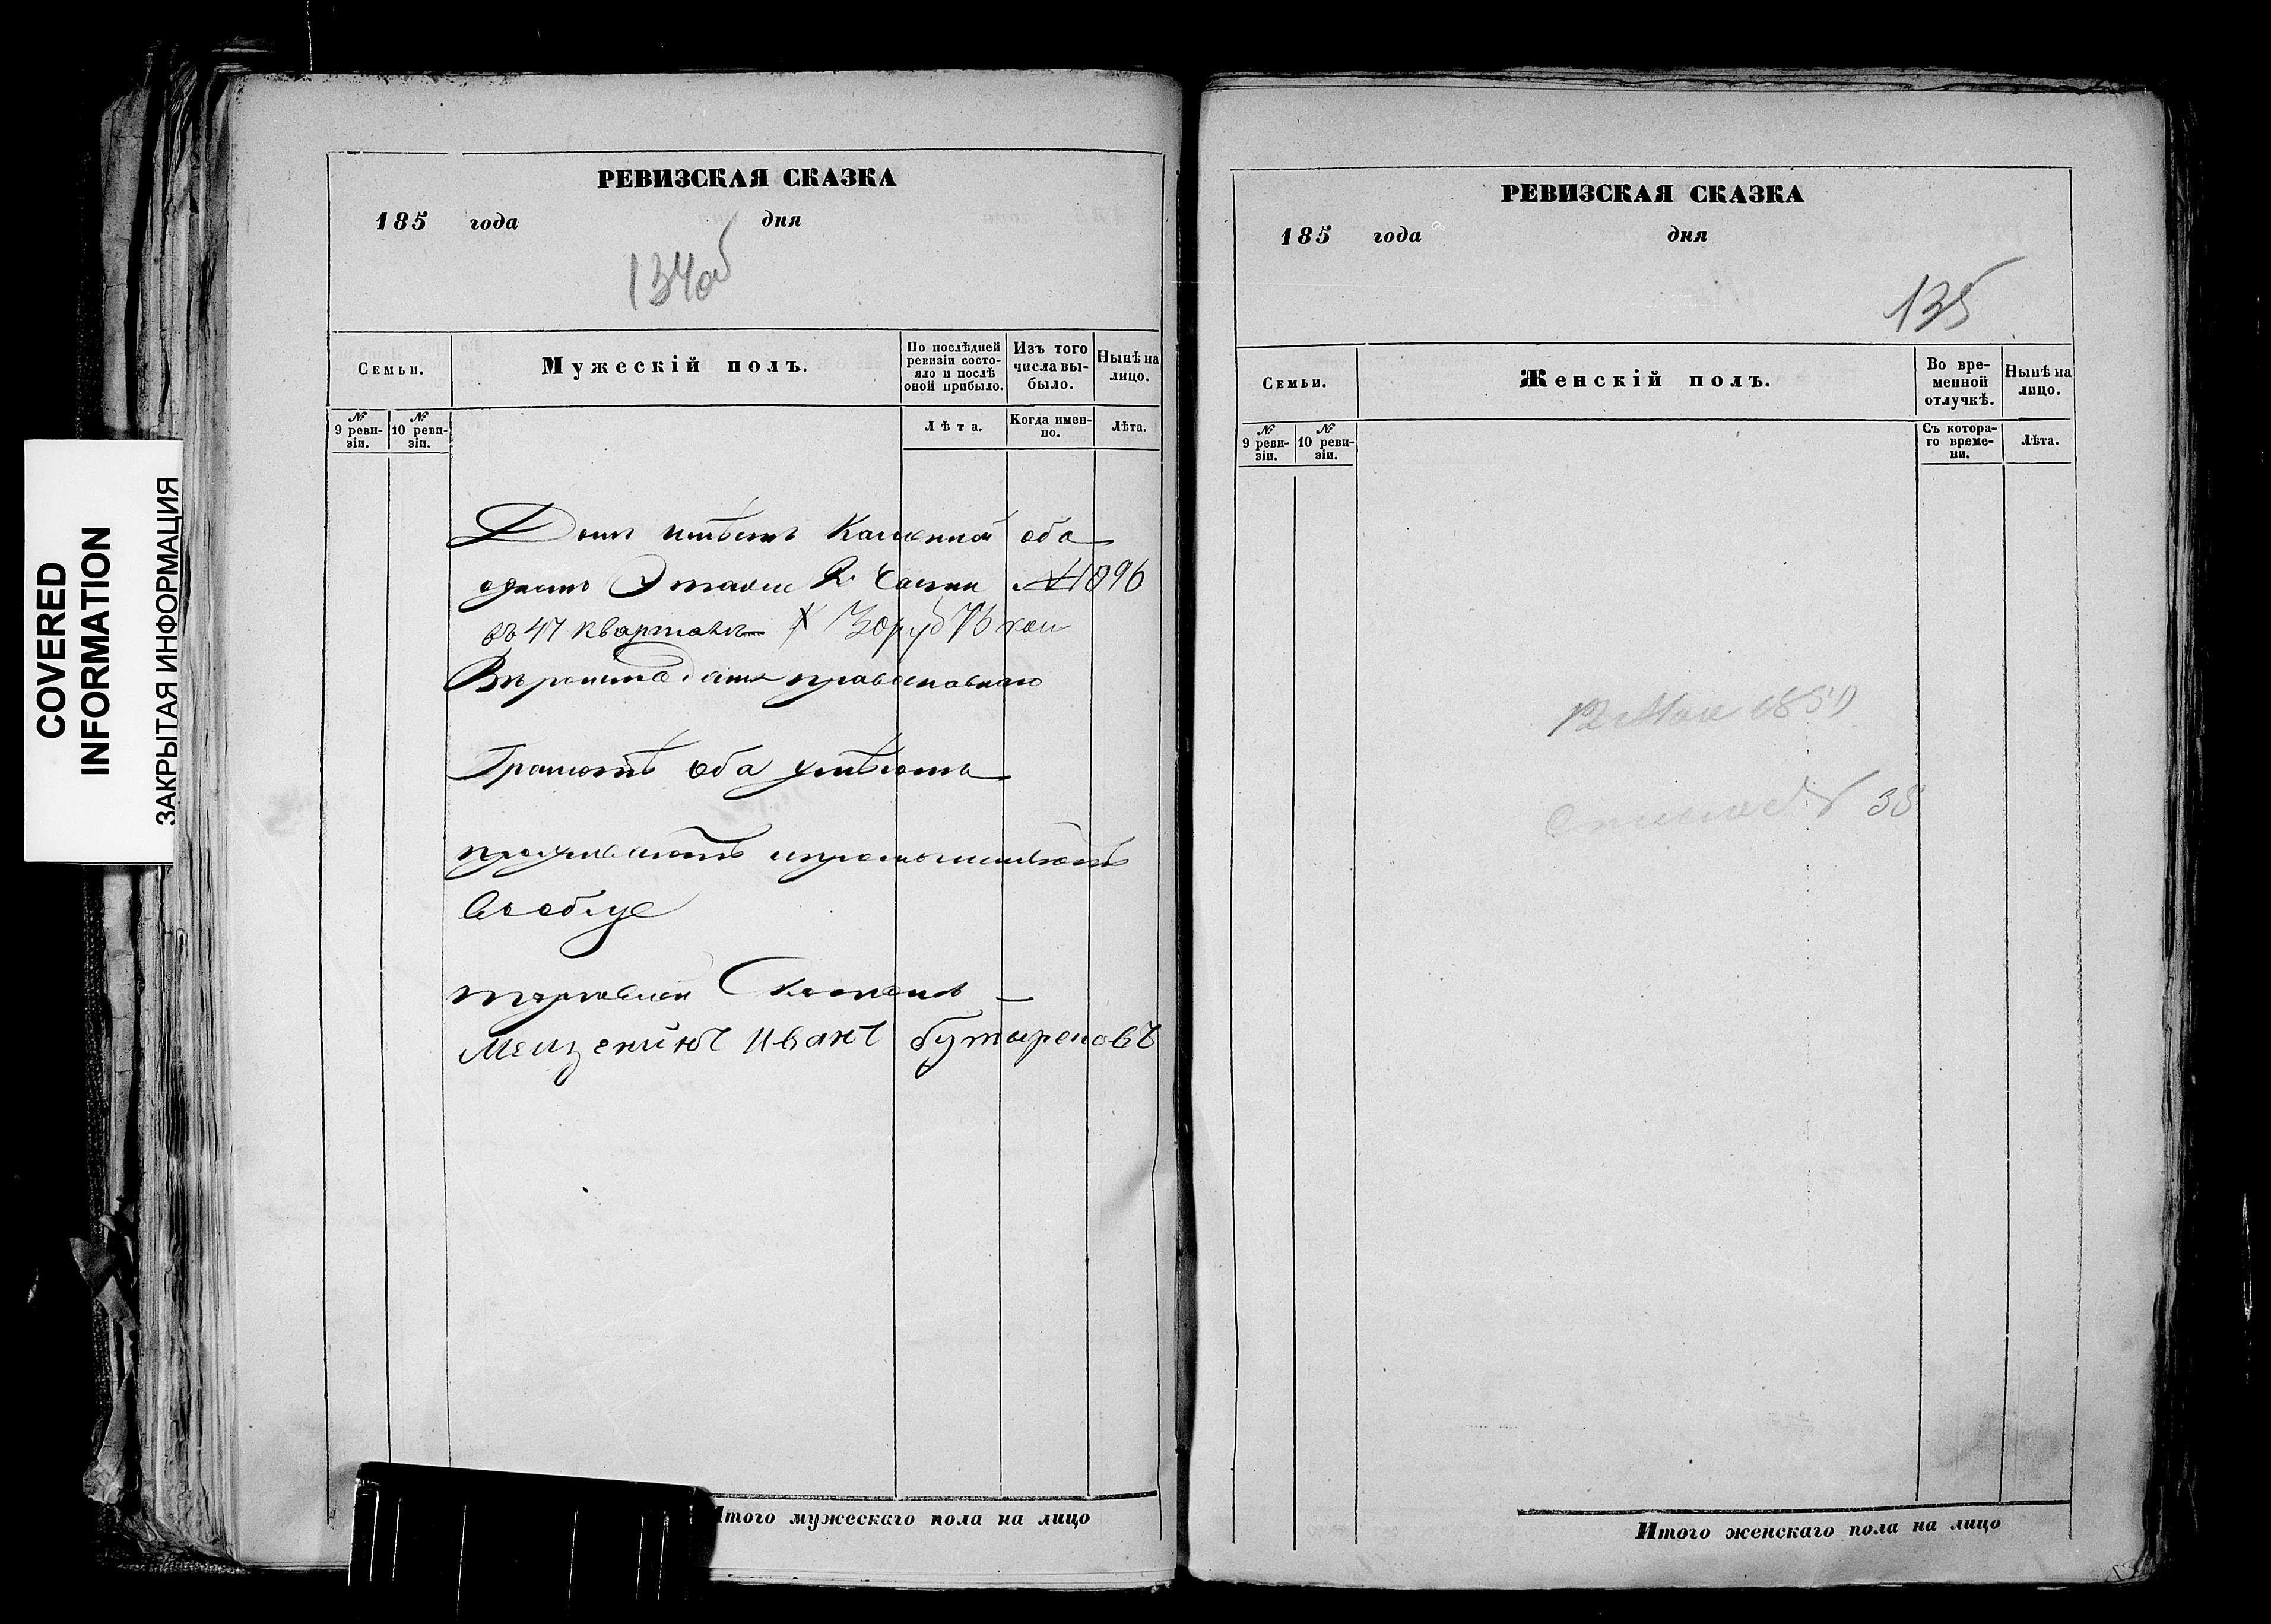 COVERED
INFORMATION
ЗАКРЫТАЯ ИНФОРМАЦИЯ
РЕВИЗСКАЯ СКАЗКА
185 года дня
134об
Семьи.
Мужескій полъ.
По послѣдней ревизіи состояло и послѣ оной прибыло.
Изъ того числа выбыло.
Нынѣ на лицо.
№ 9 ревизіи.
№ 10 ревизіи.
Лѣта.
Когда именно.
Лѣта.
Домъ имѣетъ Каменной оба
Этаже 2 Части № 1896
въ 47 кварталѣ
православнаго
Грамотѣ оба умѣютъ
торговлей
Мещенинъ Иванъ бутыреновъ
Итого мужескаго пола на лицо
РЕВИЗСКАЯ СКАЗКА
185 года дня
135
Семьи.
Женскій полъ.
Во временной отлучкѣ.
Нынѣ на лицо.
№ 9 ревизіи.
№ 10 ревизіи.
Съ котораго времени.
Лѣта.
12 Мая 185
№ 38
Итого женскаго пола на лицо